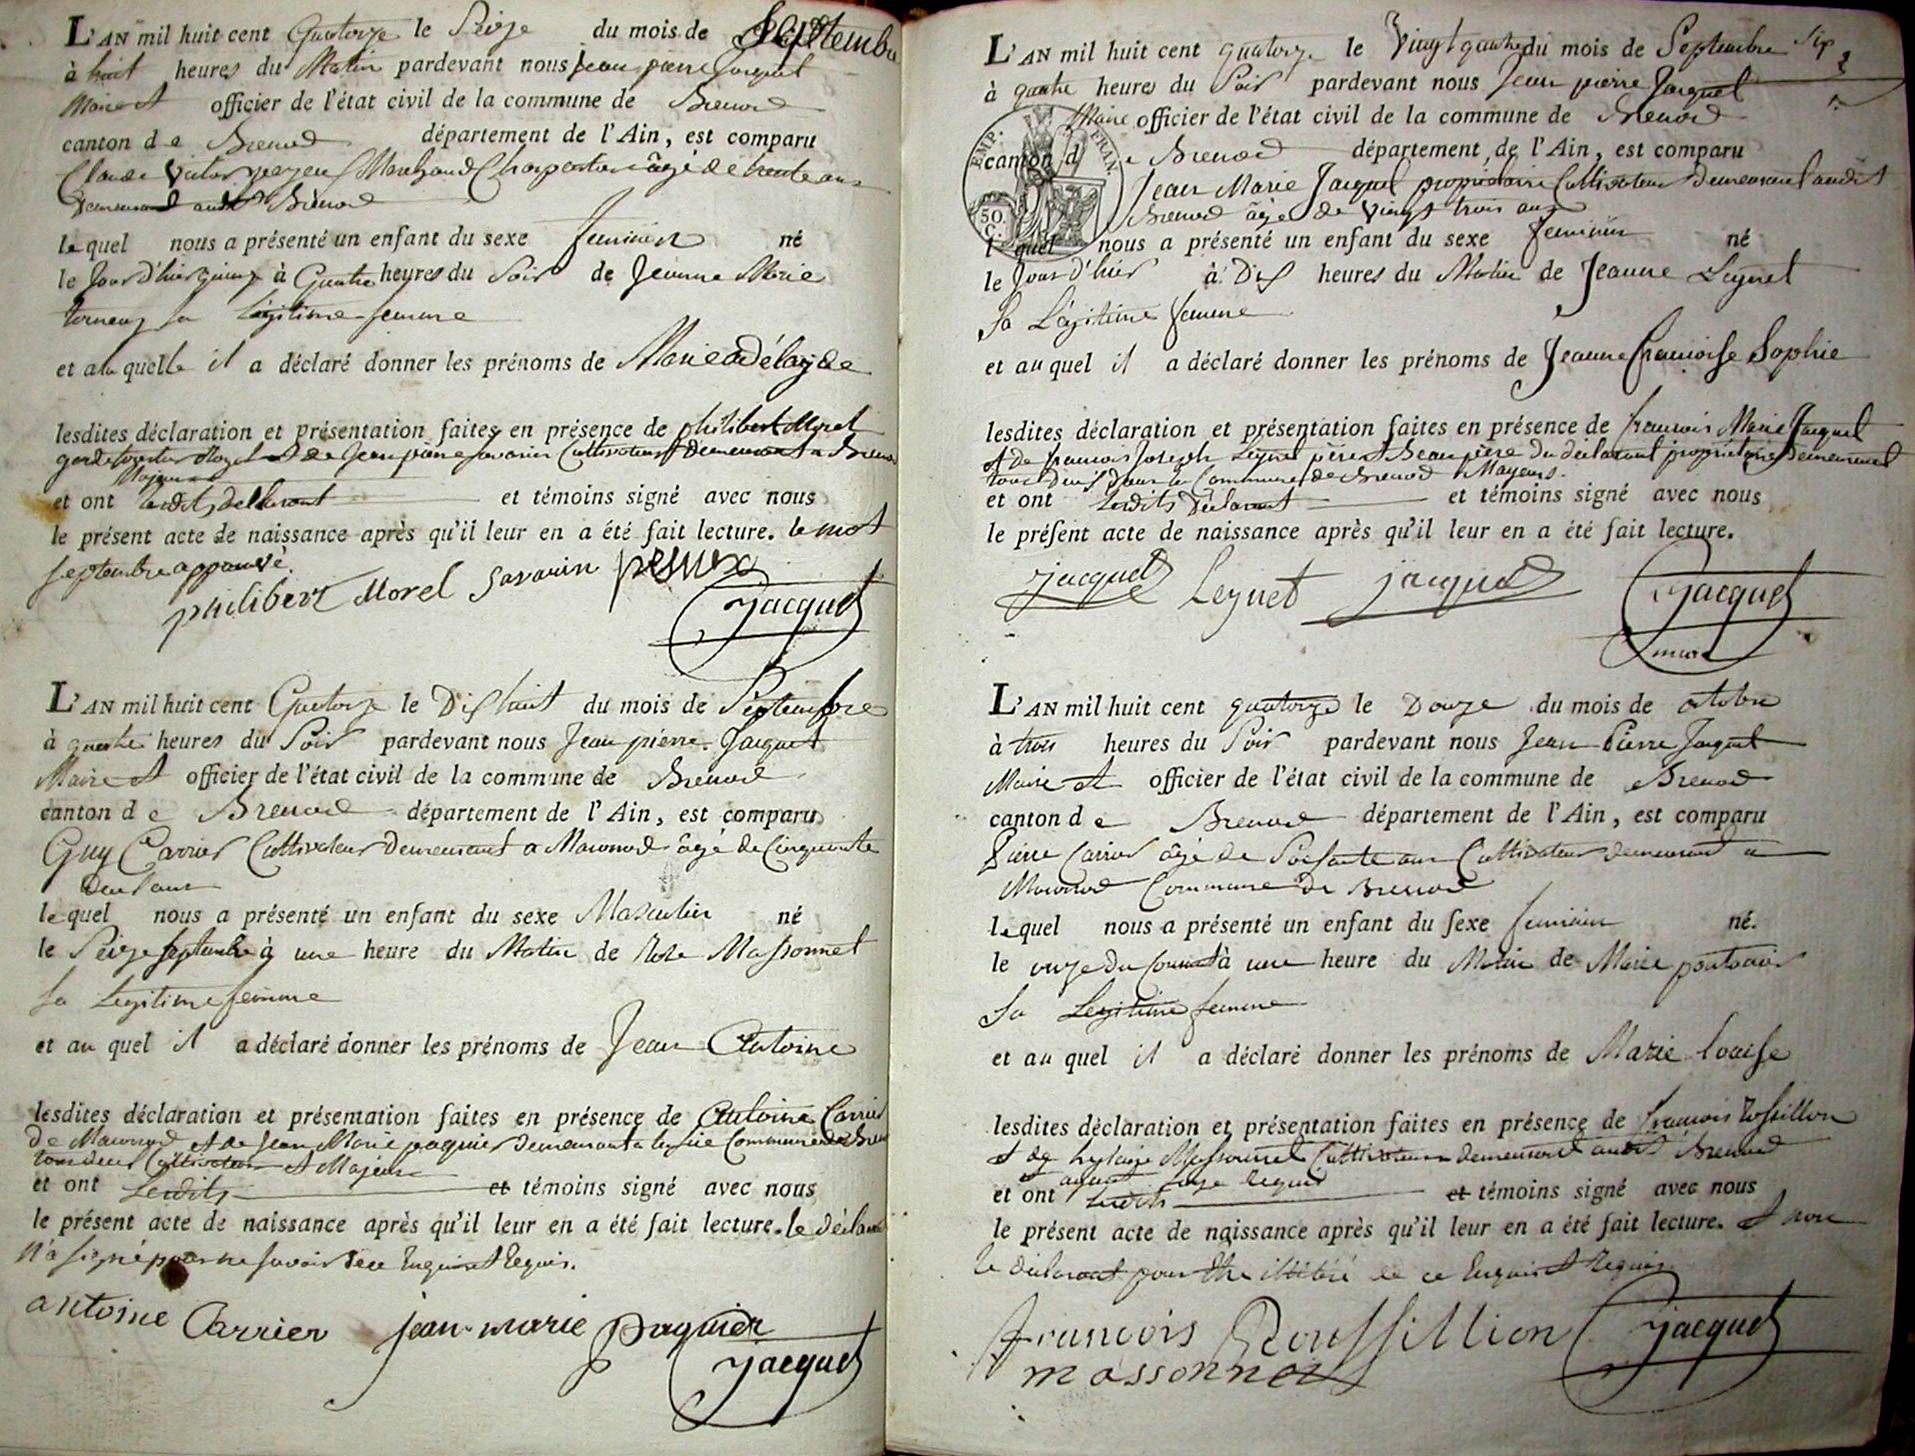 L'AN mil huit cent Quatorze le Seize du mois de Septembre
à huit heures du Matin pardevant nous Jean pierre Jacquet
Maire et officier de l'état civil de la commune de Brenod
canton de Brenod département de l'Ain, est comparu
Claude Victor Marchand Charpentier âgé de trente ans
Demeurant audit Brenod
lequel nous a présenté un enfant du sexe feminin né
le Jour d'hier quinze à Quatre heures du Soir de Jeanne Marie
sa Légitime femme
et au quelle il a déclaré donner les prénoms de Marie adélayde
lesdites déclaration et présentation faites en présence de philibert Morel
garde forestier et de Jean pierre Savarin Cultivateurs demeurant a Brenod
Majeurs
et ont lesdits déclarant et témoins signé avec nous
le présent acte de naissance après qu'il leur en a été fait lecture. le mot
septembre approuvé.
philibert Morel Savarin
Jacquet
L'AN mil huit cent Quatorze le Dix huit du mois de Septembre
à quatre heures du Soir pardevant nous Jean pierre Jacquet
Maire et officier de l'état civil de la commune de Brenod
canton de Brenod département de l'Ain, est comparu
Guy Carrier Cultivateur Demeurant a Macconod âgé de Cinquante
Deux ans
lequel nous a présenté un enfant du sexe Masculin né
le Seize septembre à une heure du Matin de Rose Massonnet
sa Legitime femme
et au quel il a déclaré donner les prénoms de Jean Antoine
lesdites déclaration et présentation faites en présence de Antoine Carrier
de Macconod et de Jean Marie paquier demeurant a Commune de Brenod
tous deux Cultivateurs et Majeurs
et ont Lesdits et témoins signé avec nous
le présent acte de naissance après qu'il leur en a été fait lecture. le déclarant
n'a signé pour ne savoir de ce Enquis et Requis.
antoine Carrier jean-marie paquier
Jacquet
L'AN mil huit cent quatorze le Vingt quatre du mois de Septembre Sep
à quatre heures du Soir pardevant nous Jean pierre Jacquet
Maire officier de l'état civil de la commune de Brenod
EMP. FRAN.
50. C.
canton de Brenod département de l'Ain, est comparu
Jean Marie Jacquet propriétaire Cultivateur demeurant audit
Brenod âgé de vingt trois ans
lequel nous a présenté un enfant du sexe feminin né
le Jour d'hier à Dix heures du Matin de Jeanne Leynet
sa Légitime femme
et au quel il a déclaré donner les prénoms de Jeanne francoise Sophie
lesdites déclaration et présentation faites en présence de francois Marie Jacquet
et de francois Joseph Leynet père et Beau père du déclarant propriétaires Demeurant
tous Deux Dans la Commune de Brenod Majeurs.
et ont Lesdits Déclarant et témoins signé avec nous
le présent acte de naissance après qu'il leur en a été fait lecture.
jacquet Leynet jacquet Jacquet
L'AN mil huit cent quatorze le Douze du mois de octobre
à trois heures du Soir pardevant nous Jean Pierre Jacquet
Maire et officier de l'état civil de la commune de Brenod
canton de Brenod département de l'Ain, est comparu
Pierre Carrier âgé de Soixante ans Cultivateur demeurant a
Macconod Commune de Brenod
lequel nous a présenté un enfant du sexe feminin né.
le onze du Courant à une heure du Matin de Marie
sa Legitime femme
et au quel il a déclaré donner les prénoms de Marie louise
lesdites déclaration et présentation faites en présence de francois Rossillon
et de Massonnet Cultivateurs demeurant audit Brenod
et ont Lesdits et témoins signé avec nous
le présent acte de naissance après qu'il leur en a été fait lecture. et non
le déclarant pour être illitéré de ce Enquis et Requis.
francois Roussillion Jacquet
massonnet